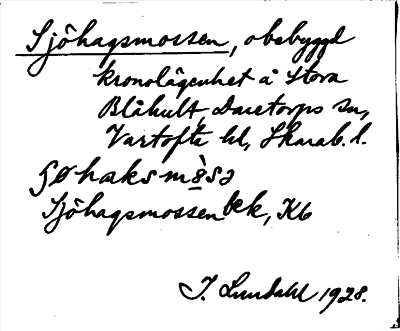 Sjöhagsmossen, obebyggd
kronolägenhet å Stora
Blåhult, Daretorps sn,
Vartofta hd, Skarab. l.
ʃøhaksmòsa
Sjöhagsmossen bek, Kb
I. Lundahl 1928.